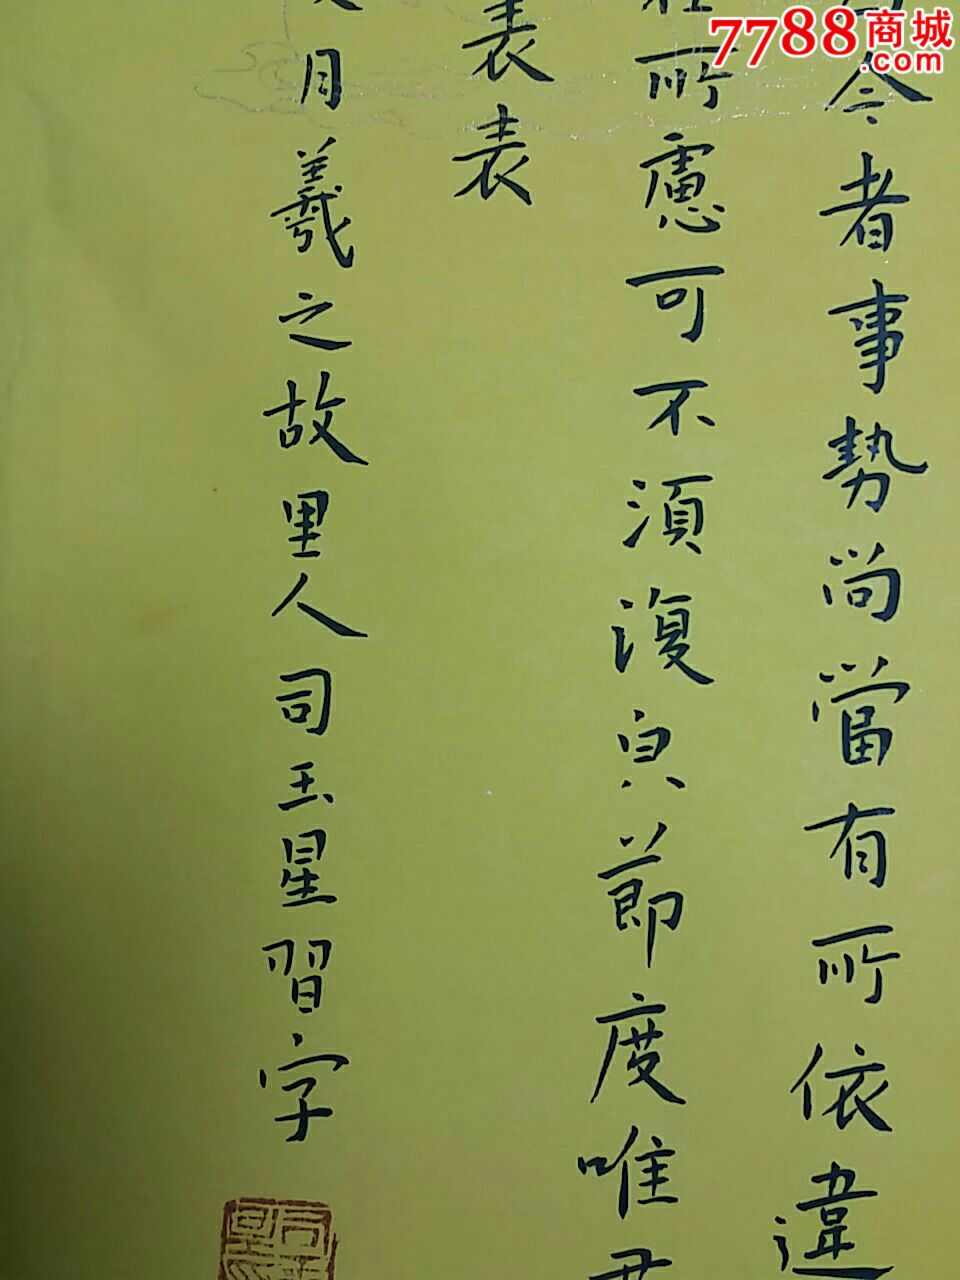 7788商城
.com
令者事勢尚當有所依違
所慮可不須復與節度唯
表表
月羲之故里人司玉星習字